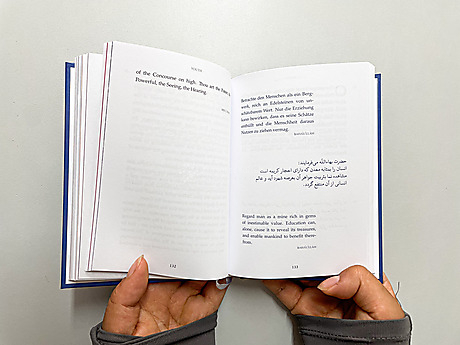 YOUTH
of the Concourse on high. Thou art the
Powerful, the Seeing, the Hearing.
132
Betrachte den Menschen als ein Berg-
werk, reich an Edelsteinen von un-
schätzbarem Wert. Nur die Erziehung
kann bewirken, dass es seine Schätze
enthüllt und die Menschheit daraus
Nutzen zu ziehen vermag.
BAHÁ'U'LLÁH
حضرت بهاءالله می‌فرمایند:
انسان را بمثابه معدن که دارای احجار کریمه است
مشاهده نما بتربیت جواهر آن بعرصه شهود آید و عالم
انسانی از آن منتفع گردد.
Regard man as a mine rich in gems
of inestimable value. Education can,
alone, cause it to reveal its treasures,
and enable mankind to benefit there-
from.
BAHÁ'U'LLÁH
133